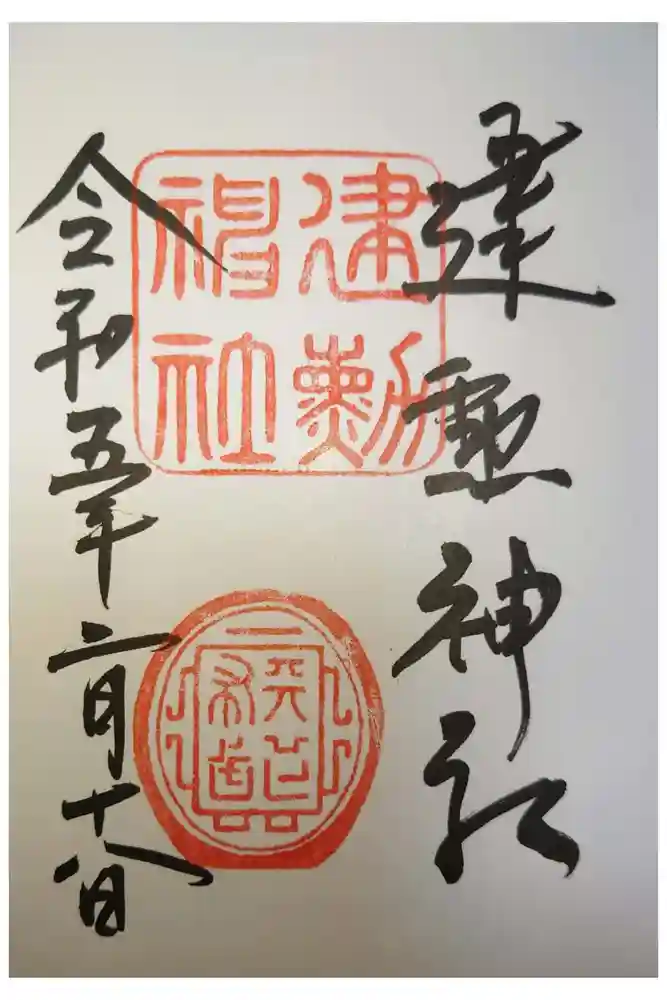 建勲神社
建勲
神社
令和五年二月十八日